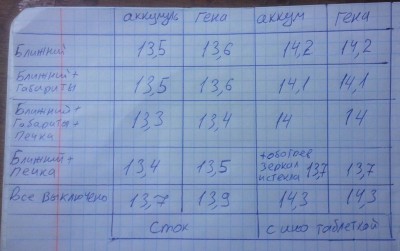 аккумул гена аккум гена
Ближний 13,5 13,6 14,2 14,2
Ближний +
Габариты 13,5 13,6 14,1 14,1
Ближний +
Габариты +
Печка 13,3 13,4 14 14
Ближний +
Печка 13,4 13,5 +обогрев
зеркал
и стекла 13,7 13,7
Все выключено 13,7 13,9 14,3 14,3
Сток с таблеткой